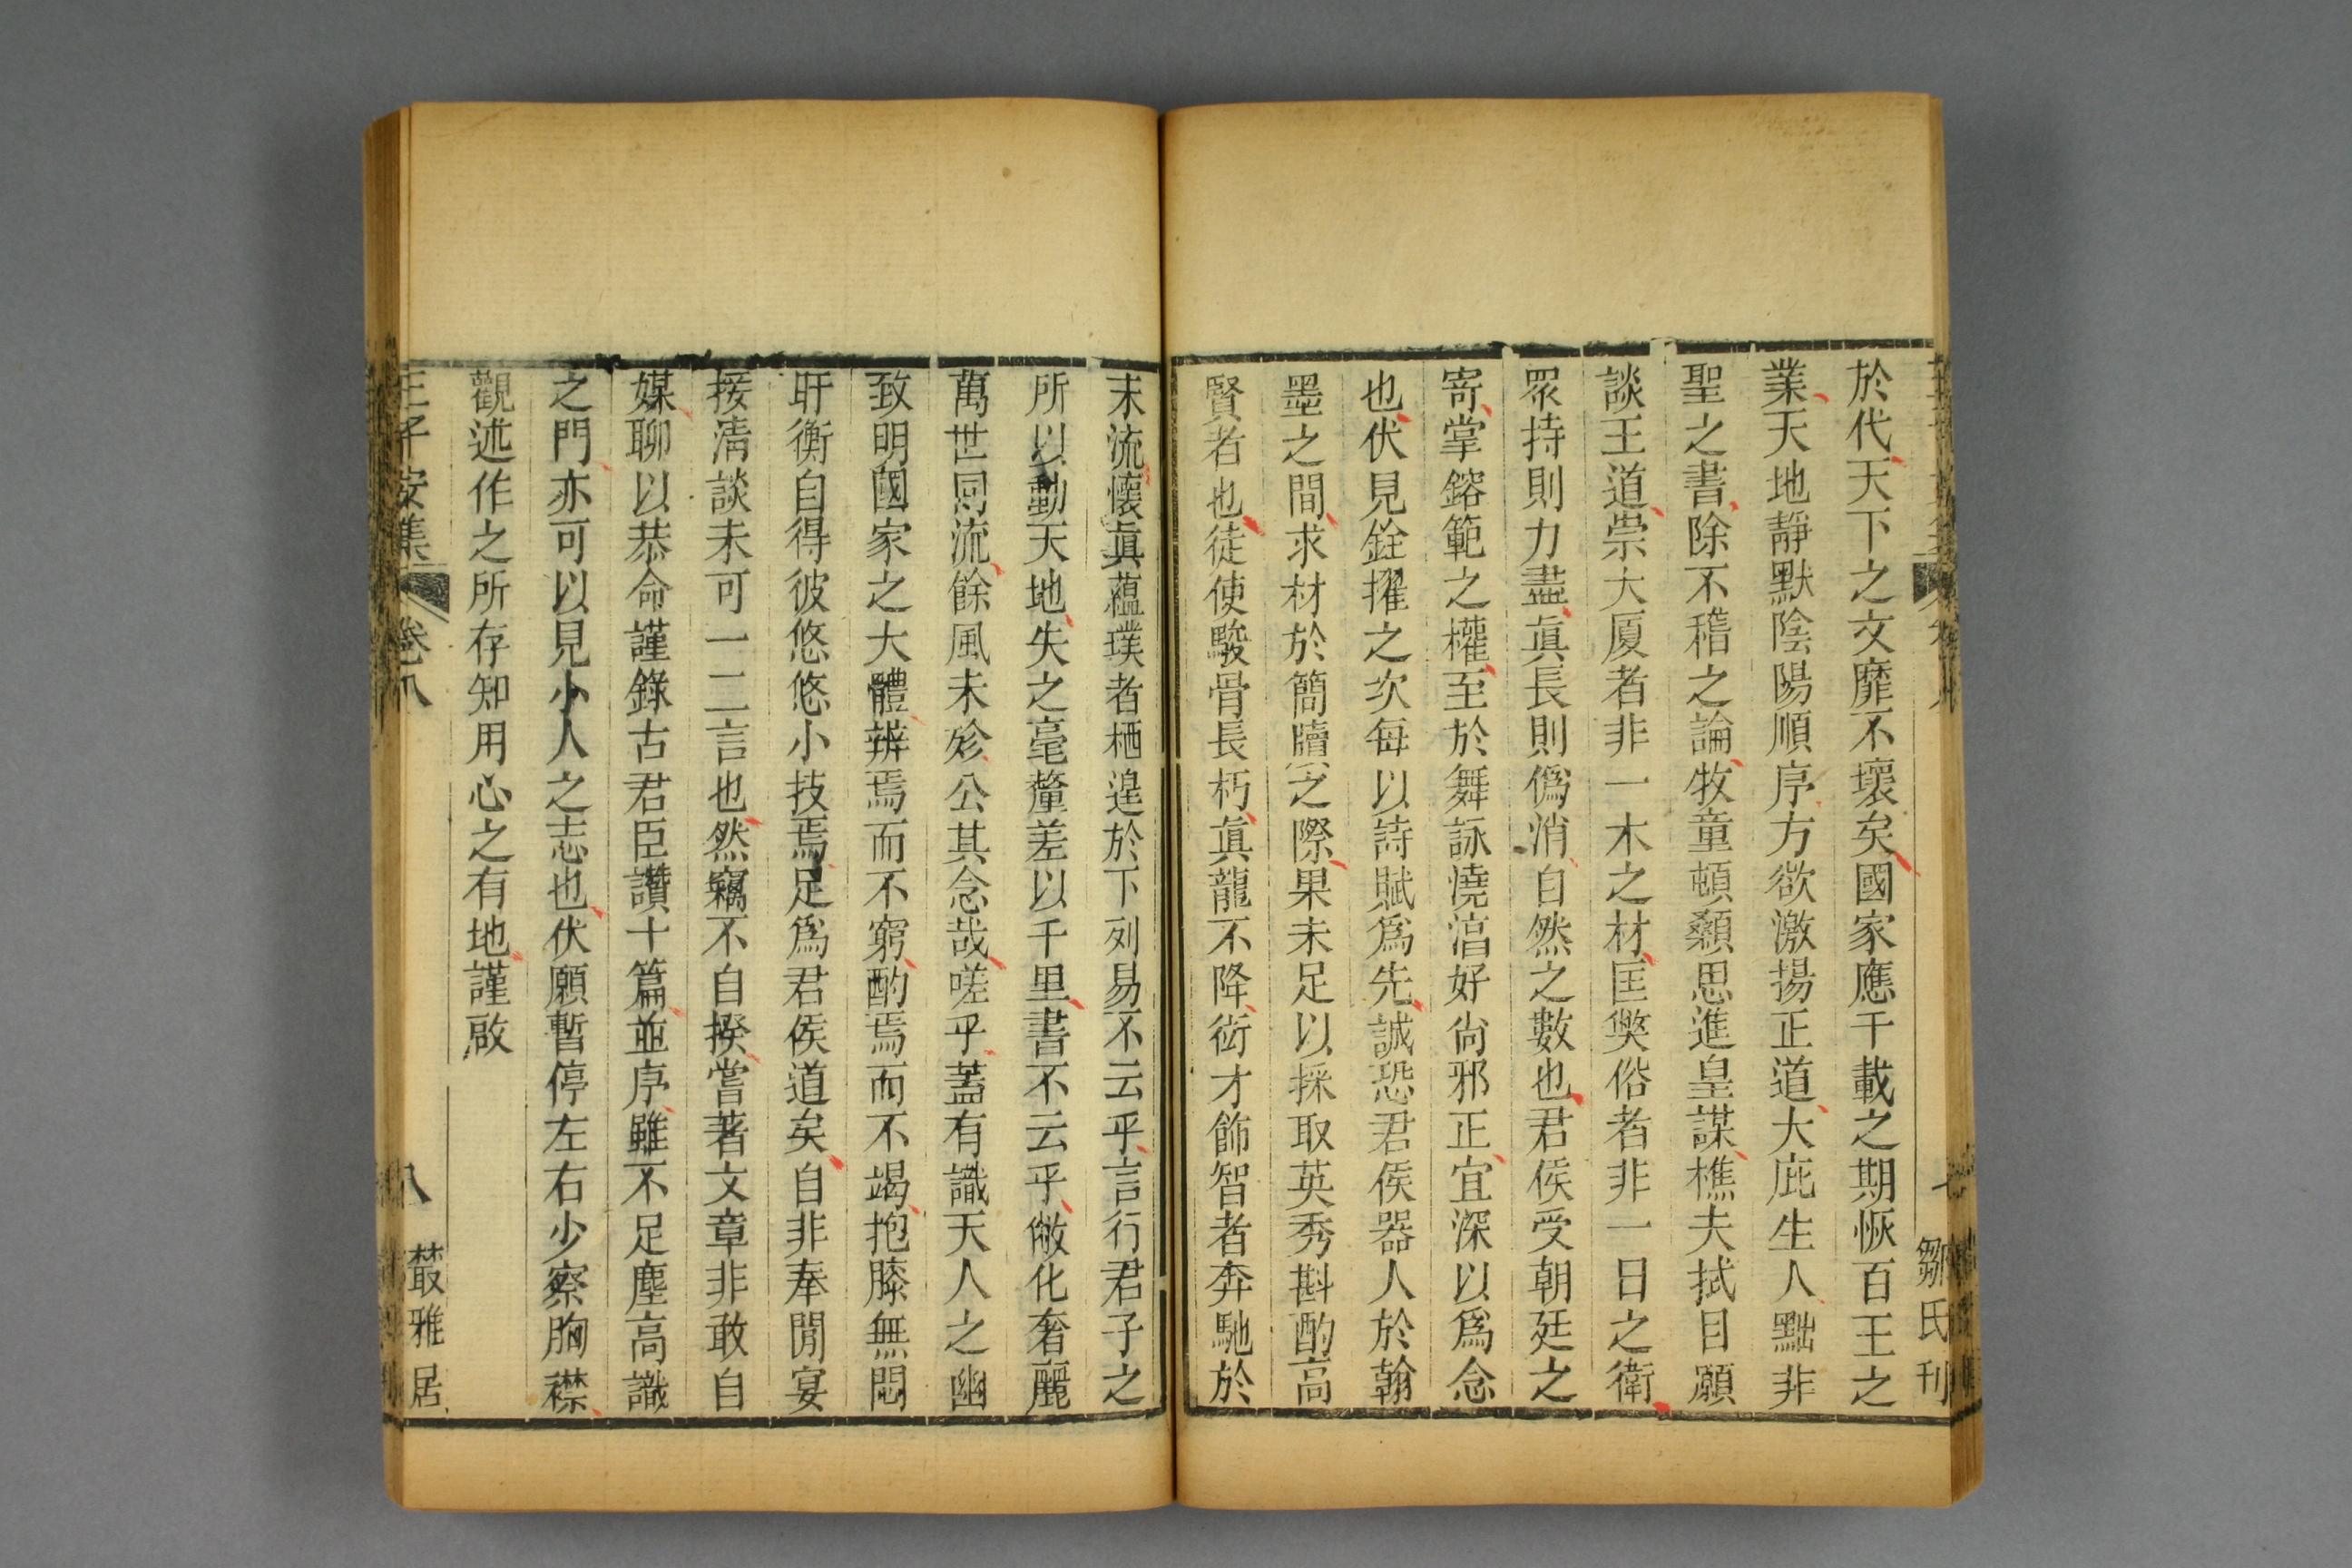 於代天下之文靡不壞矣國家應千載之期恢百王之
業天地靜默陰陽順序方欲激揚正道大庇生人黜非
聖之書除不稽之論牧童頓顙思進皇謀樵夫拭目願
談王道崇大厦者非一木之材匡獘俗者非一日之衛
眾持則力盡眞長則僞消自然之數也君侯受朝廷之
寄掌鎔範之權至於舞詠澆淳好尚邪正宜深以爲念
也伏見銓擢之次每以詩賦爲先誠恐君侯器人於翰
墨之間求材於簡牘之際果未足以採取英秀斟酌高
賢者也徒使駿骨長朽眞龍不降衒才飾智者奔馳於
鄒氏刊
末流懷眞蘊璞者栖遑於下列易不云乎言行君子之
所以動天地失之毫釐差以千里書不云乎敝化奢麗
萬世同流餘風未殄公其念哉嗟乎蓋有識天人之幽
致明國家之大體辨焉而不窮酌焉而不竭抱膝無悶
盱衡自得彼悠悠小技焉足爲君侯道矣自非奉閒宴
接清談未可一二言也然竊不自揆嘗著文章非敢自
媒聊以恭命謹錄古君臣讚十篇並序雖不足塵高識
之門亦可以見小人之志也伏願暫停左右少察胸襟
觀述作之所存知用心之有地謹啟
王子安集 卷八 八 叢雅居